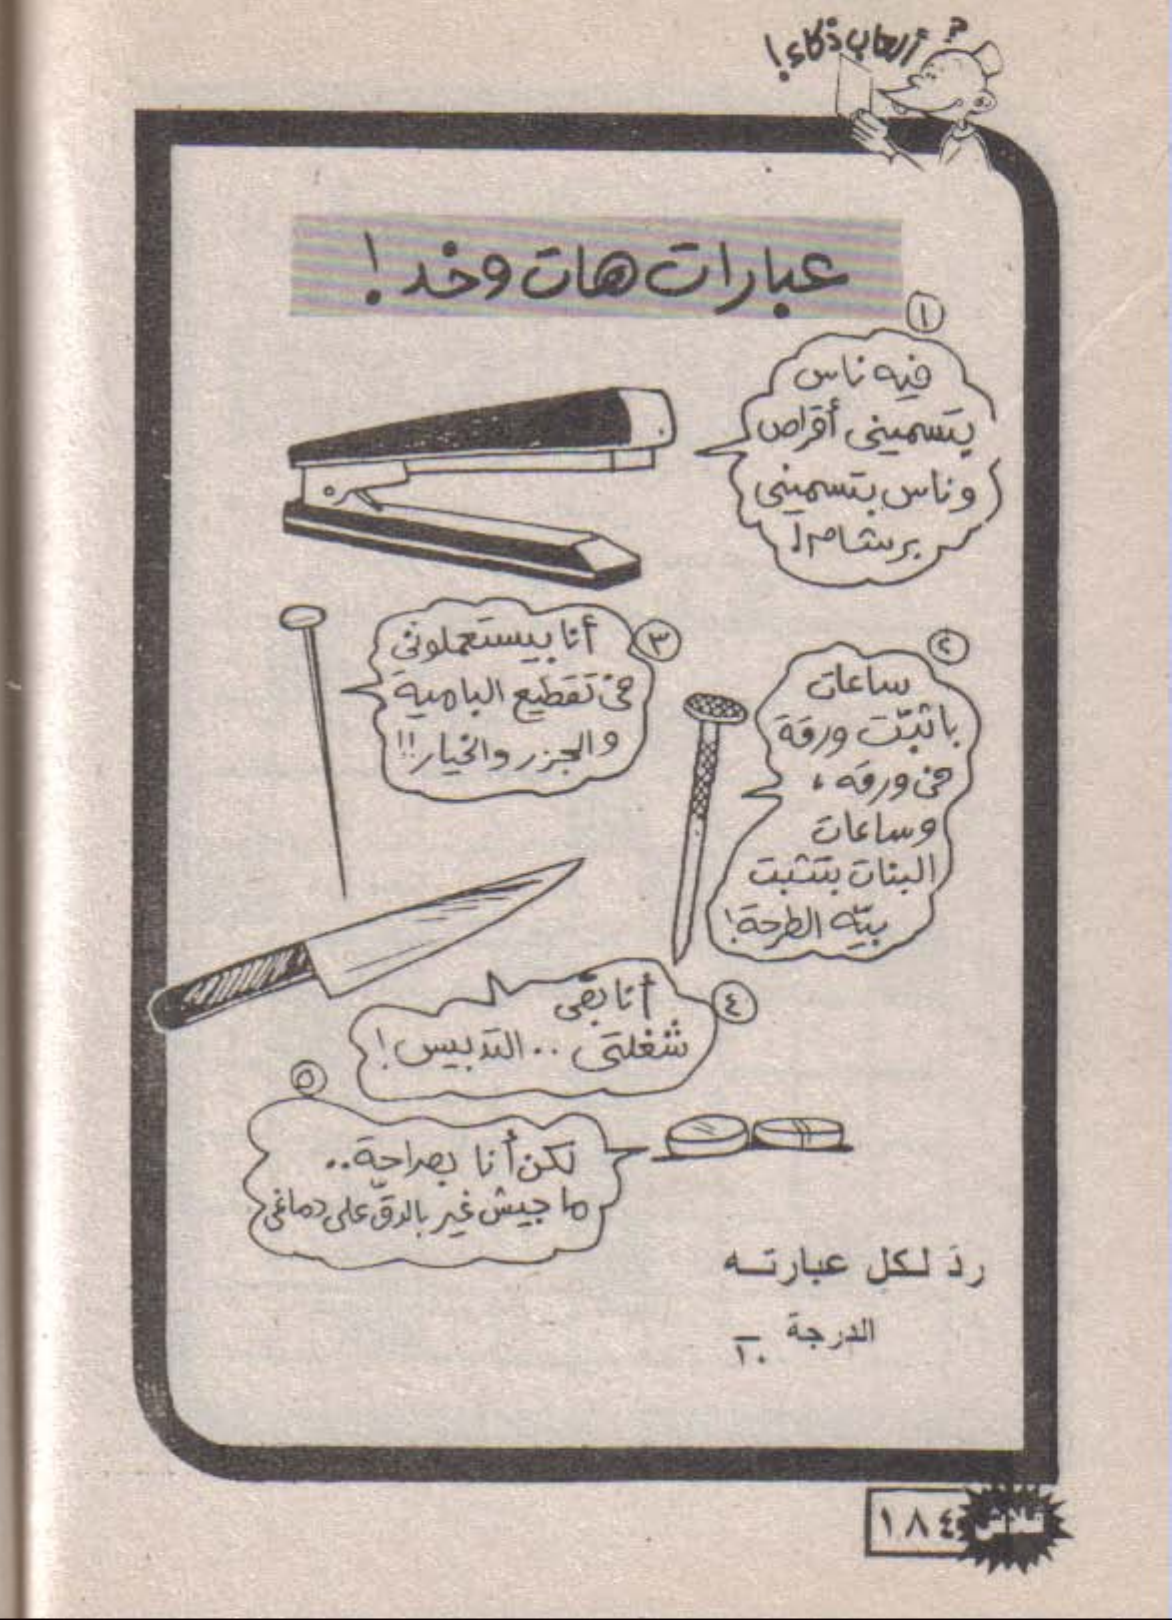 ألعاب ذكاء!
عبارات هات وخد!
١
فيه ناس
بتسمينى أقراص
وناس بتسمينى
برشام!
٢
ساعات
باثبّت ورقة
فى ورقه ،
وساعات
البنات بتثبت
بيّه الطرحة!
٣
أنا بيستعملونى
فى تقطيع البامية
والجزر والخيار!!
٤
أنا بقى
شغلتى .. التدبيس!
٥
لكن أنا بصراحة..
ما جيش غير بالدقّ على دماغى
ردَ لكل عبارته
الدرجة ١٠
فلاش ١٨٤